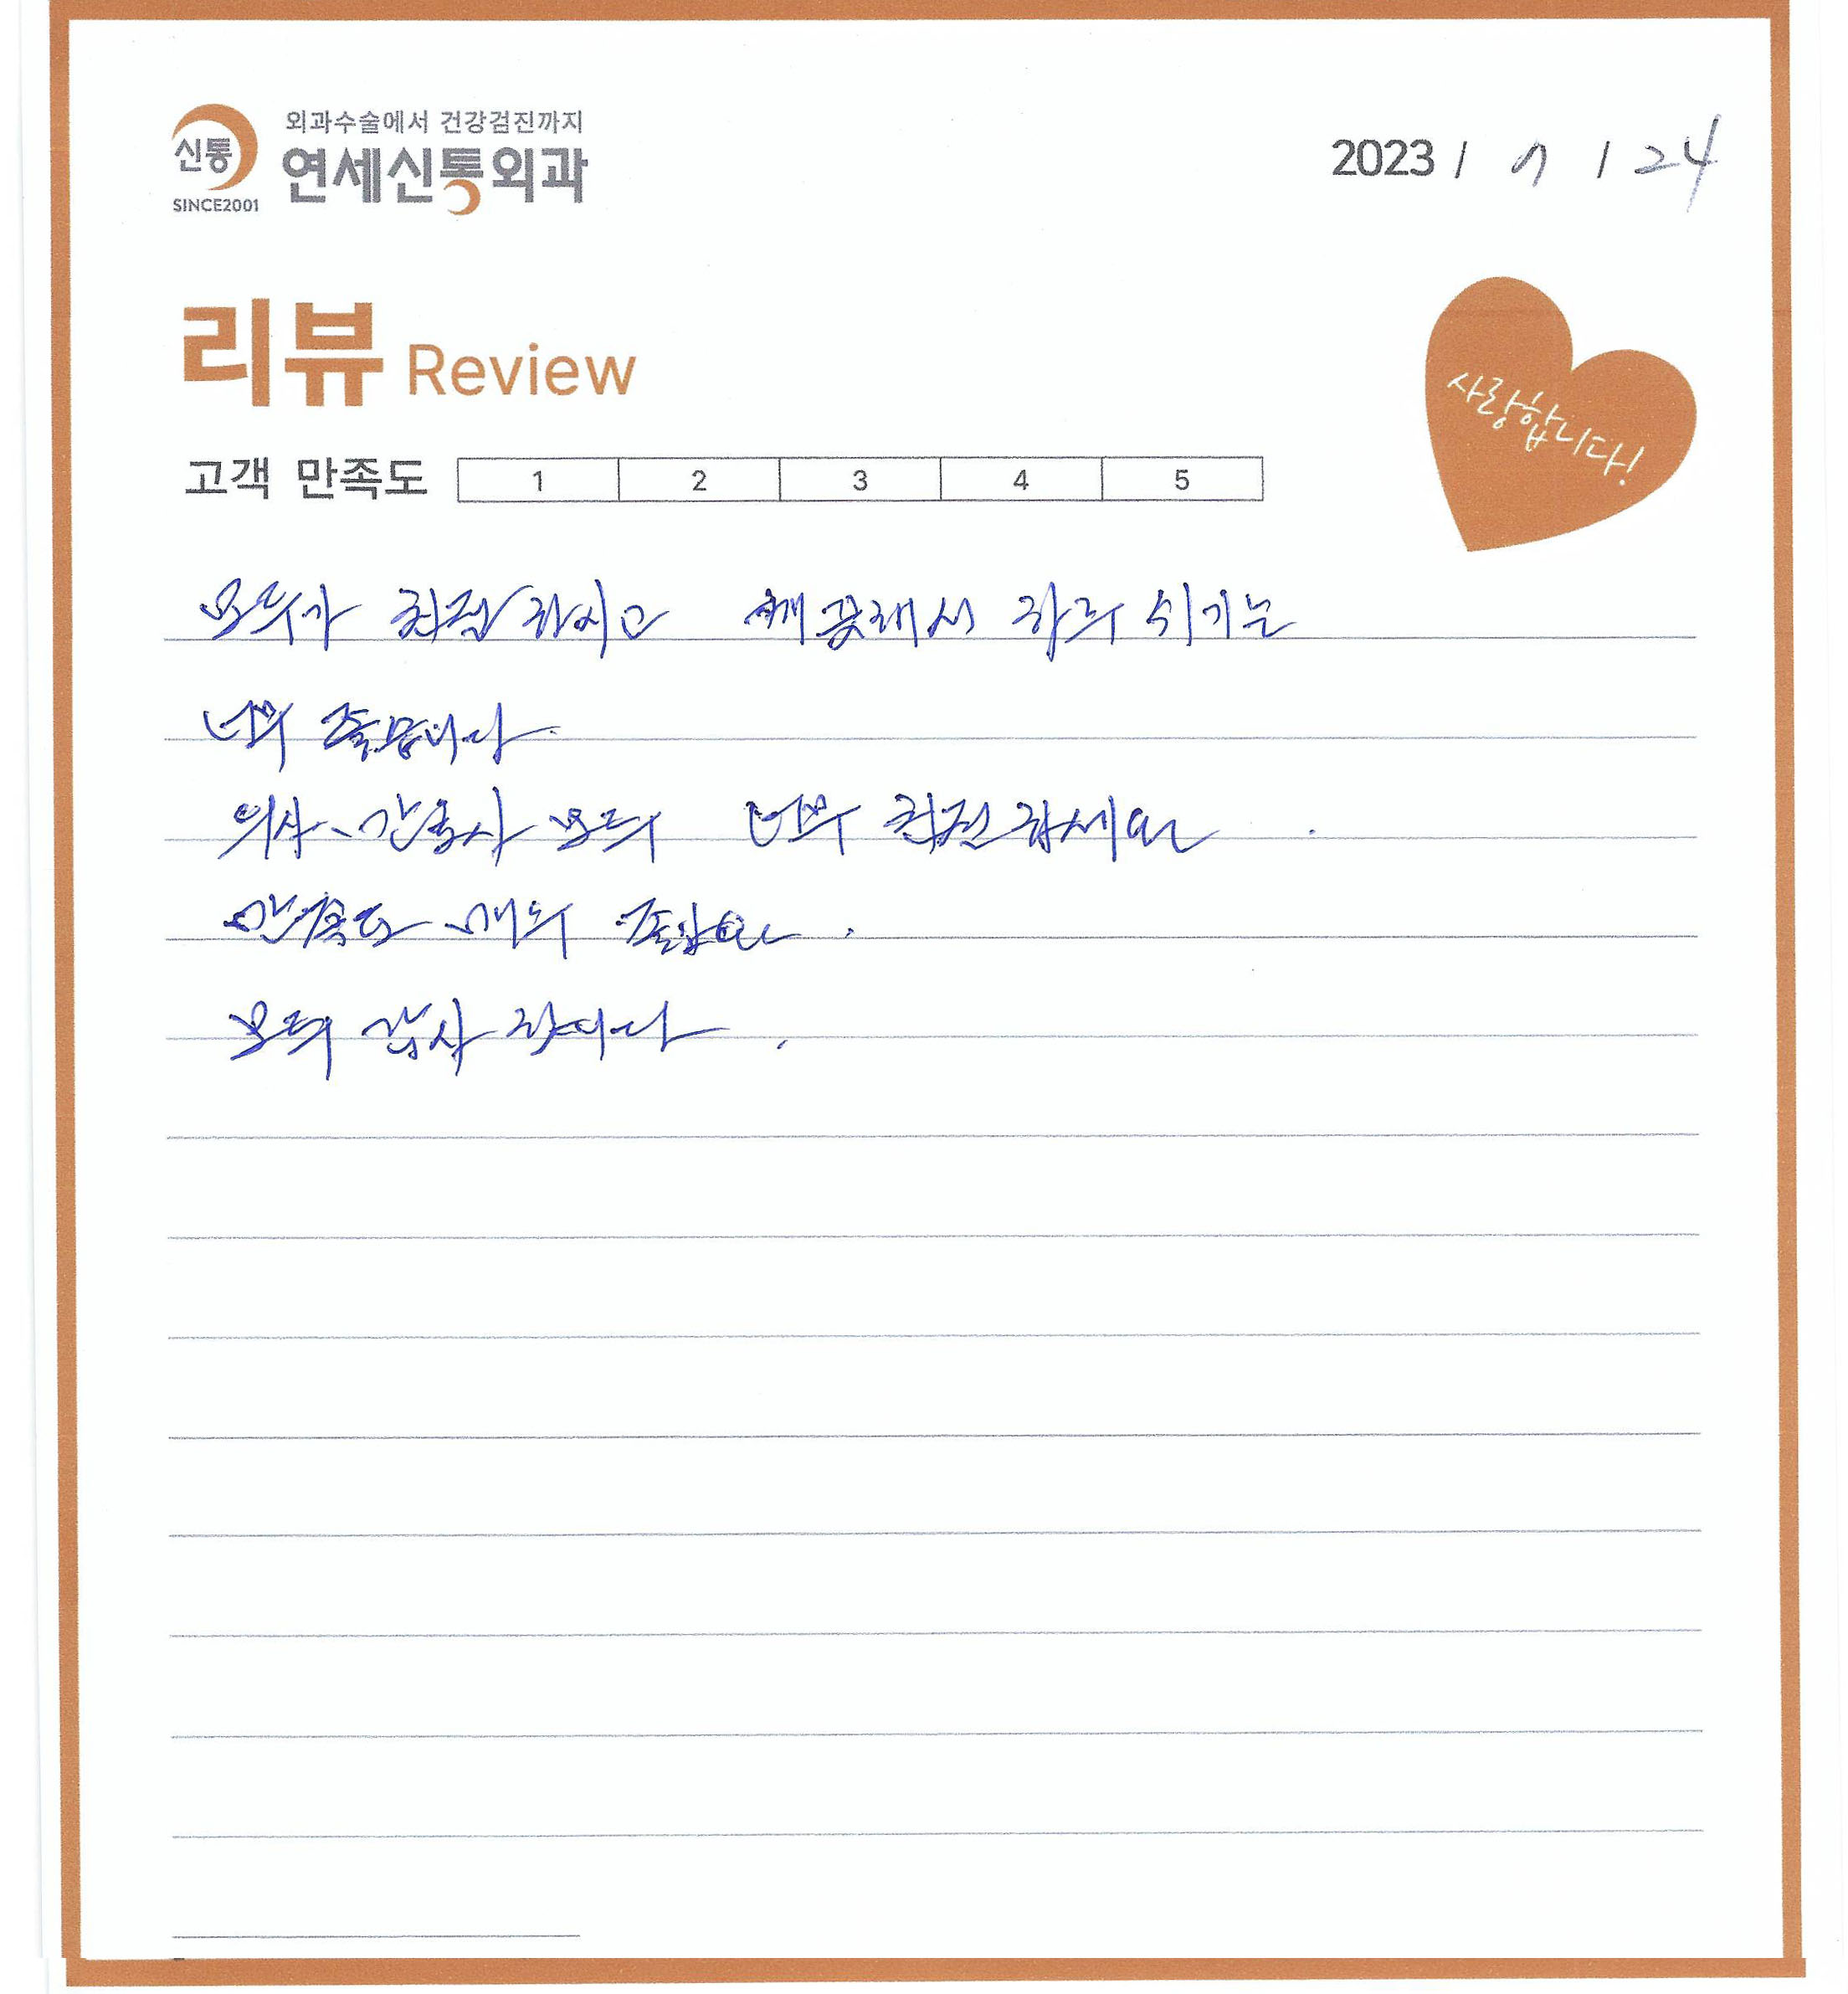 외과수술에서 건강검진까지
신통 연세신통외과
SINCE2001
2023 / 7 / 24
리뷰 Review
사랑합니다!
고객 만족도 1 2 3 4 5
모두가 친절하시고 깨끗해서 하루 쉬기는
너무 좋습니다.
의사、간호사 모두 너무 친절하세요.
만족도 매우 좋아요.
모두 감사합니다.